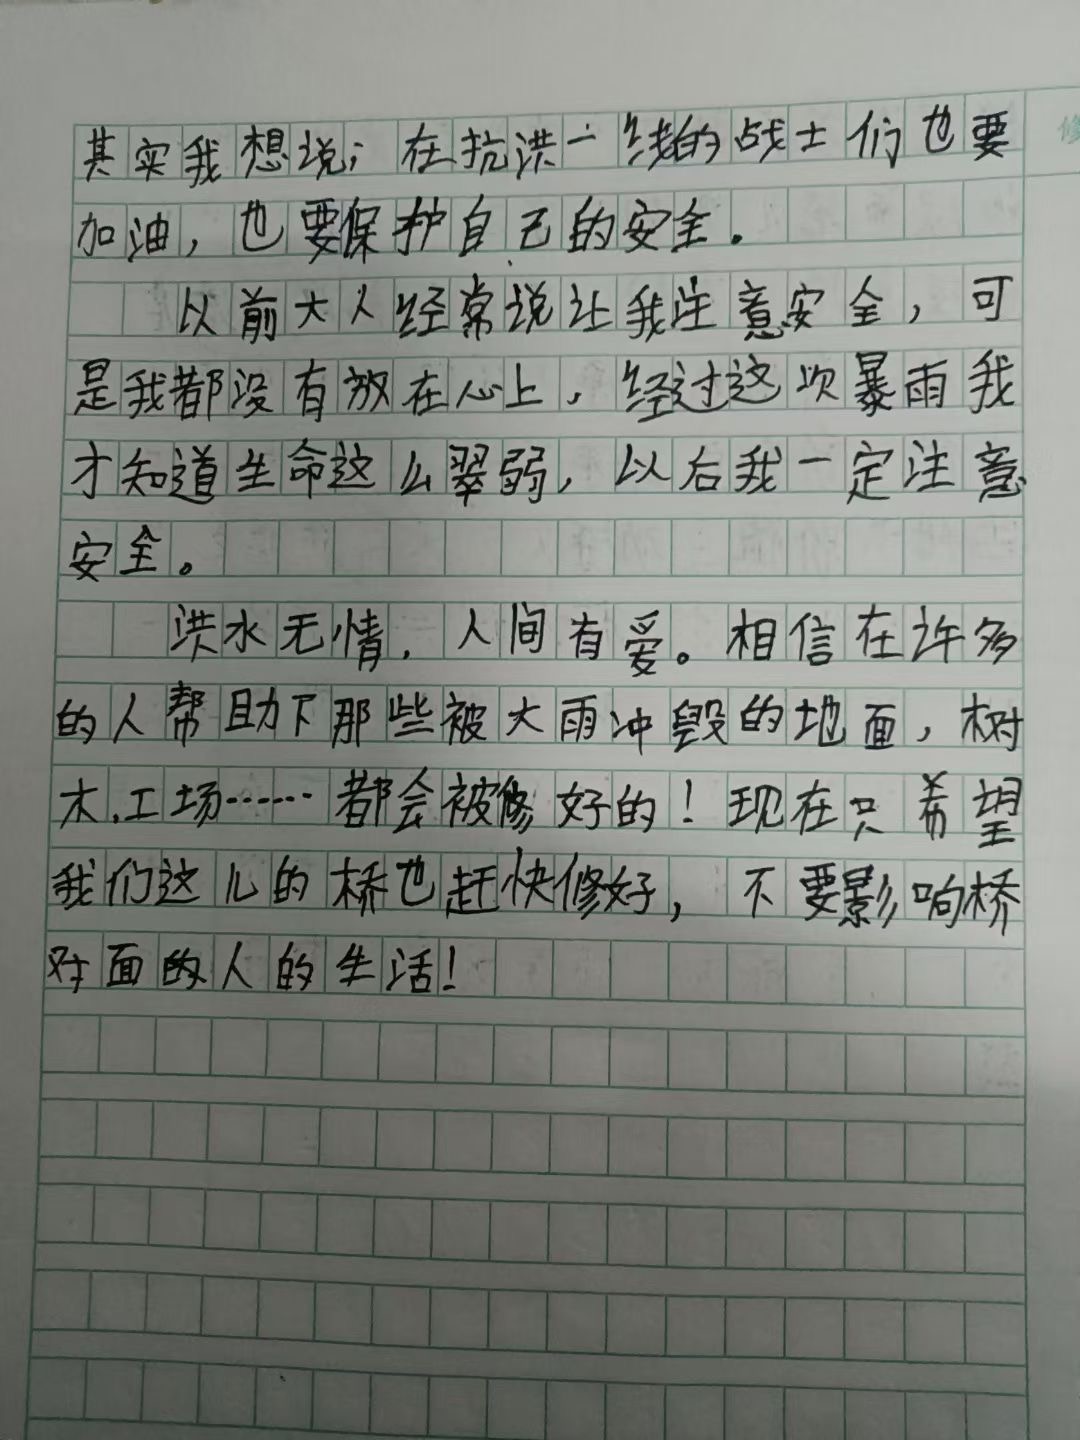 其实我想说；在抗洪一线的战士们也要
加油，也要保护自己的安全．
以前大人经常说让我注意安全，可
是我都没有放在心上，经过这次暴雨我
才知道生命这么翠弱，以后我一定注意
安全。
洪水无情，人间有爱。相信在许多
的人帮助下那些被大雨冲毁的地面，树
木．工场……都会被修好的！现在只希望
我们这儿的桥也赶快修好，不要影响桥
对面的人的生活！